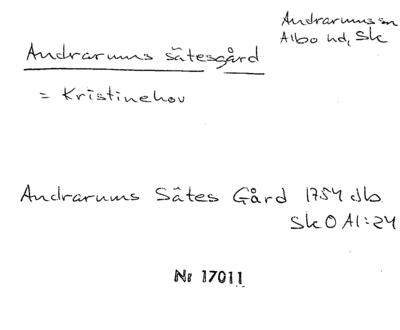 Andrarums sn
Albo hd, Sk
Andrarums sätesgård
= Kristinehov
Andrarums Sätes Gård 1754 Jb
Sk O Al:24
Nr 17011